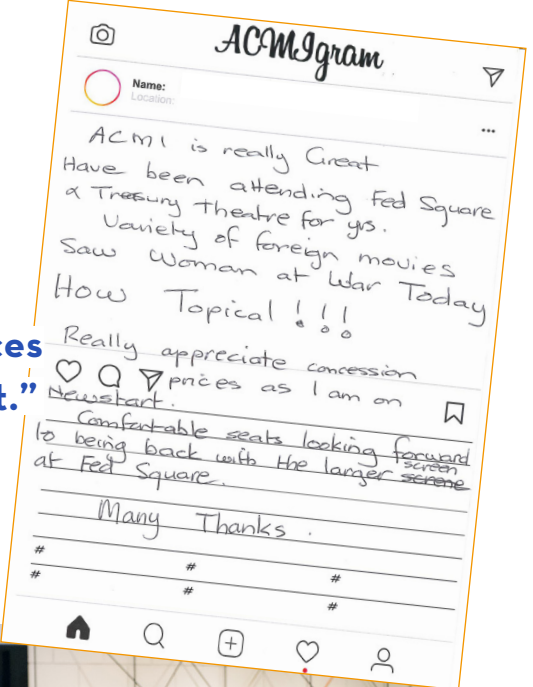 ACMIgram
Name:
Location:
ACMI is really Great
Have been attending Fed Square
& Tresury Theatre for yrs.
Variety of foreign movies
Saw Woman at War Today
How Topical !!!
Really appreciate concession
prices as I am on
Newstart.
Comfortable seats looking forward
to being back with the larger screen
serene
at Fed Square.
Many Thanks.
# # #
# # #
ces
t.”